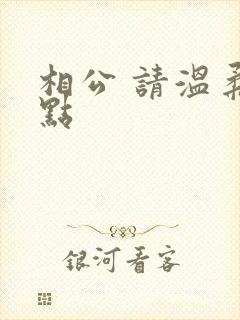 相公 請溫柔
點
銀河看客